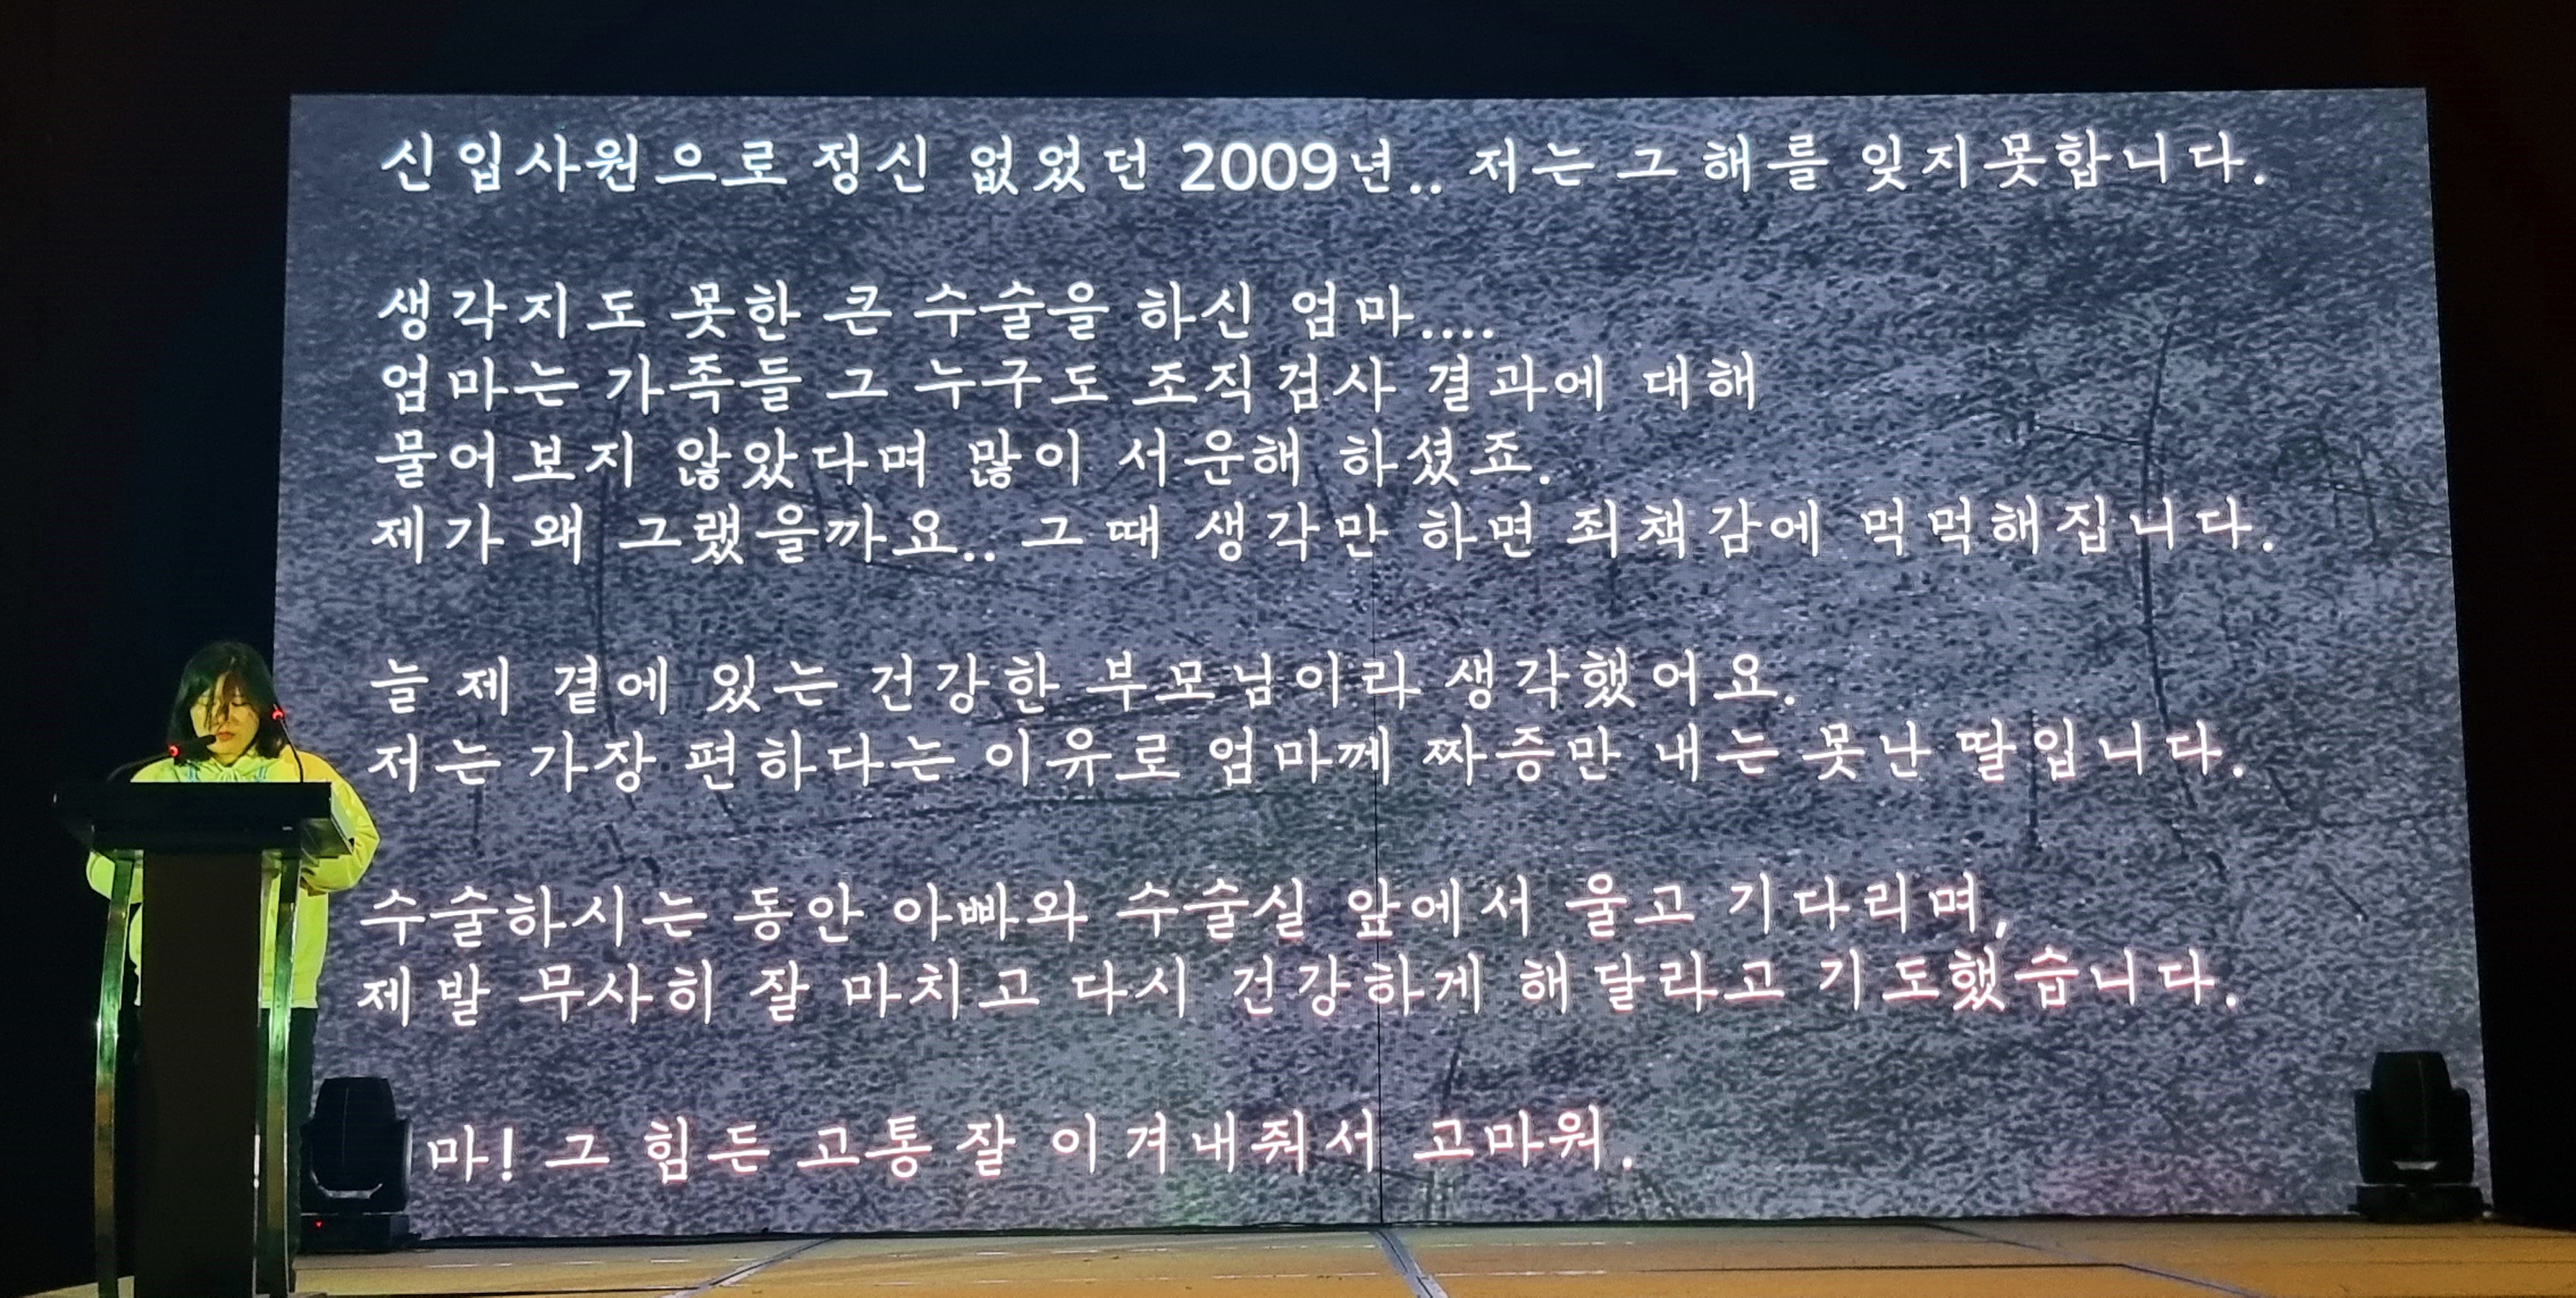 신입사원으로 정신 없었던 2009년.. 저는 그 해를 잊지못합니다.
생각지도 못한 큰 수술을 하신 엄마....
엄마는 가족들 그 누구도 조직검사 결과에 대해
물어보지 않았다며 많이 서운해 하셨죠.
제가 왜 그랬을까요.. 그때 생각만 하면 죄책감에 먹먹해집니다.
늘 제 곁에 있는 건강한 부모님이라 생각했어요.
저는 가장 편하다는 이유로 엄마께 짜증만 내는 못난 딸입니다.
수술하시는 동안 아빠와 수술실 앞에서 울고 기다리며,
제발 무사히 잘 마치고 다시 건강하게 해달라고 기도했습니다.
마! 그 힘든 고통 잘 이겨내줘서 고마워.